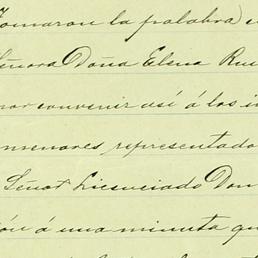 Tomaron la palabra
Señora Doña Elena
por convenir así á los
menores representado
Señor Licenciado Don
á una minuta